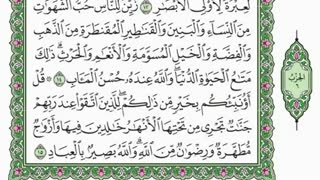 لَعِبْرَةً لِأُوْلِى الْأَبْصَٰرِ ١٣ زُيِّنَ لِلنَّاسِ حُبُّ الشَّهَوَٰتِ
مِنَ النِّسَآءِ وَالْبَنِينَ وَالْقَنَٰطِيرِ الْمُقَنطَرَةِ مِنَ الذَّهَبِ
وَالْفِضَّةِ وَالْخَيْلِ الْمُسَوَّمَةِ وَالْأَنْعَٰمِ وَالْحَرْثِ ذَٰلِكَ
مَتَٰعُ الْحَيَوٰةِ الدُّنْيَا وَاللَّهُ عِندَهُۥ حُسْنُ الْمَـَٔابِ ١٤ قُلْ
أَؤُنَبِّئُكُم بِخَيْرٍ مِّن ذَٰلِكُمْ لِلَّذِينَ اتَّقَوْا عِندَ رَبِّهِمْ
جَنَّٰتٌ تَجْرِى مِن تَحْتِهَا الْأَنْهَٰرُ خَٰلِدِينَ فِيهَا وَأَزْوَٰجٌ
مُّطَهَّرَةٌ وَرِضْوَٰنٌ مِّنَ اللَّهِ وَاللَّهُ بَصِيرٌ بِالْعِبَادِ ١٥
الحزب
٦